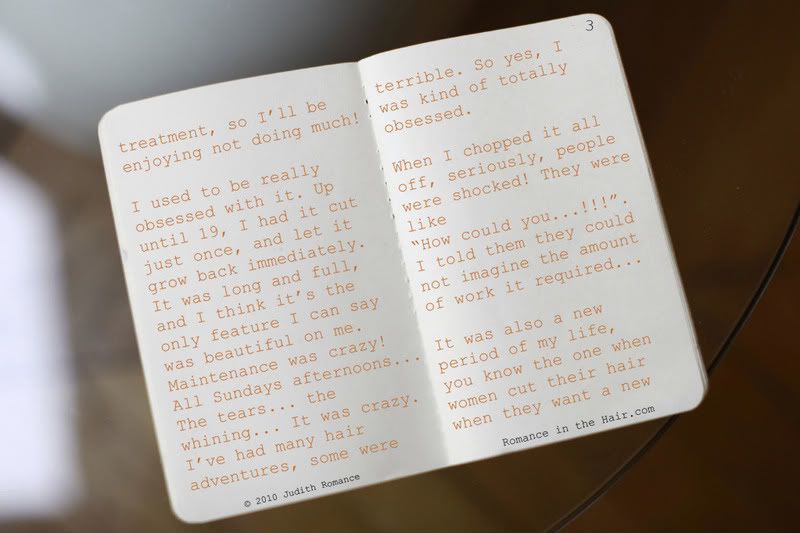 treatment, so I'll be
enjoying not doing much!
I used to be really
obsessed with it. Up
until 19, I had it cut
just once, and let it
grow back immediately.
It was long and full,
and I think it's the
only feature I can say
was beautiful on me.
Maintenance was crazy!
All Sundays afternoons...
The tears... the
whining... It was crazy.
I've had many hair
adventures, some were
© 2010 Judith Romance
3
terrible. So yes, I
was kind of totally
obsessed.
When I chopped it all
off, seriously, people
were shocked! They were
like
“How could you...!!!”.
I told them they could
not imagine the amount
of work it required...
It was also a new
period of my life,
you know the one when
women cut their hair
when they want a new
Romance in the Hair.com